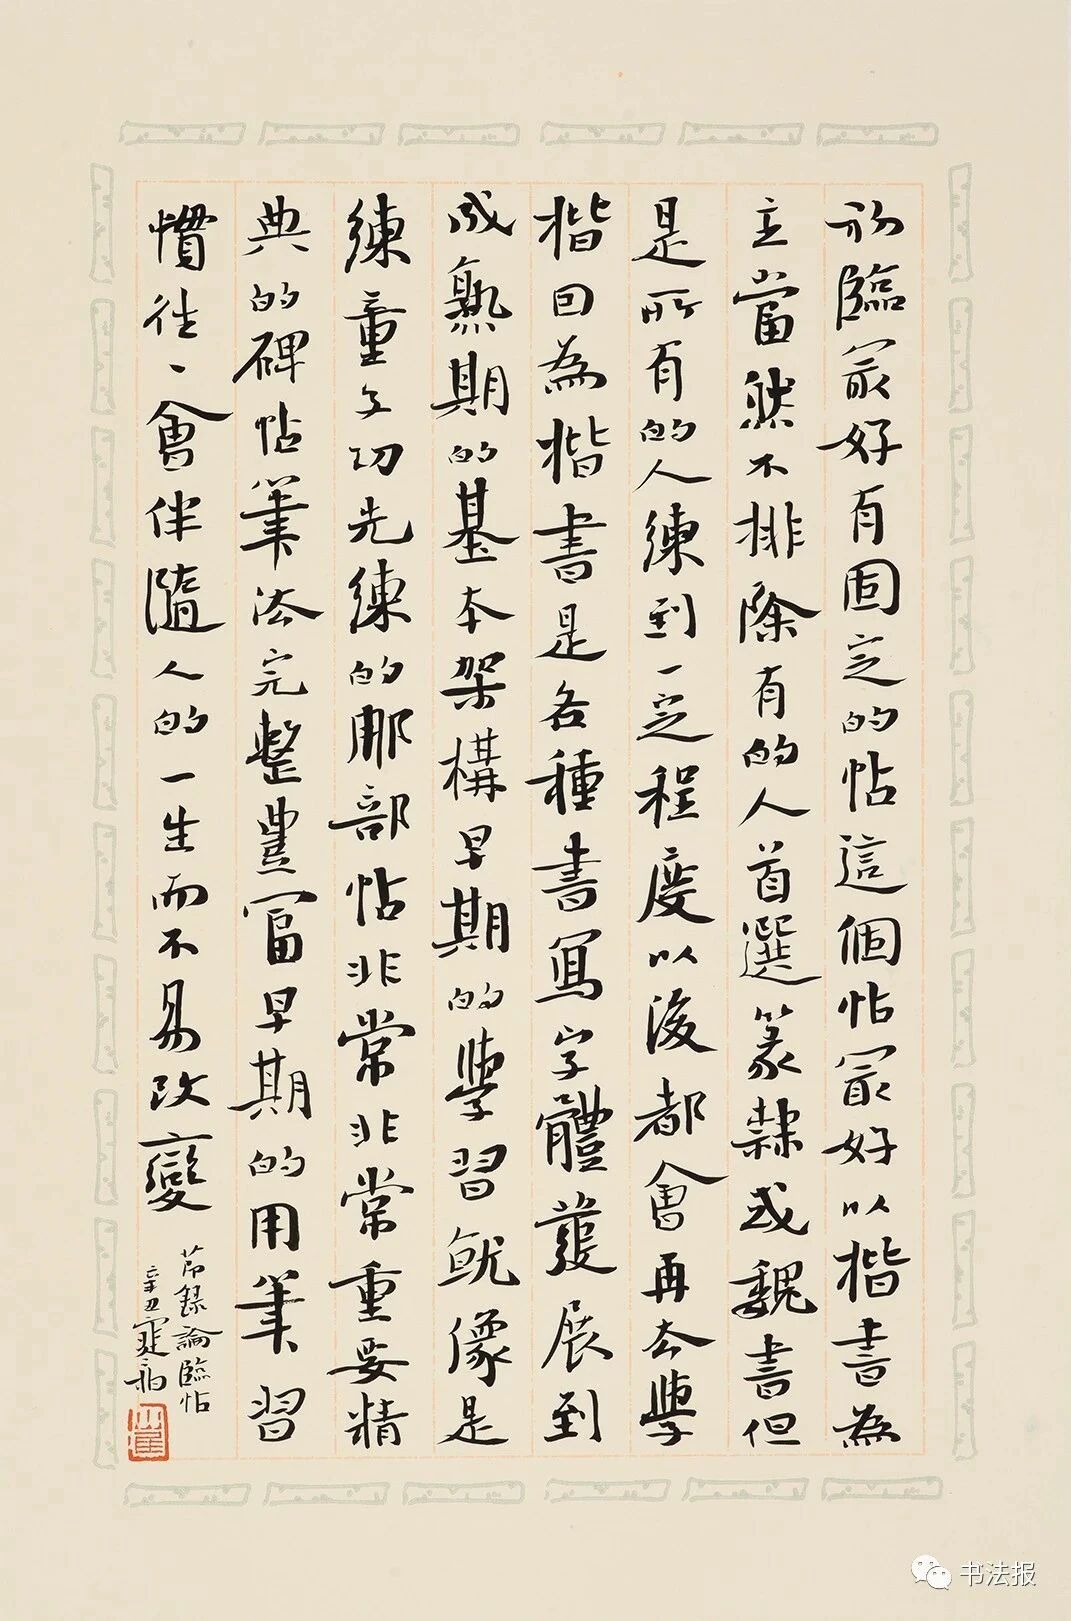 初臨最好有固定的帖這個帖最好以楷書為
主當然不排除有的人首選篆隸或魏書但
是所有的人練到一定程度以後都會再去學
楷回為楷書是各種書寫字體發展到
成熟期的基本架構早期的學習就像是
練童子功先練的那部帖非常非常重要精
典的碑帖筆法完整豐富早期的用筆習
慣往、會伴隨人的一生而不易改變
節錄論臨帖
辛丑
书法报